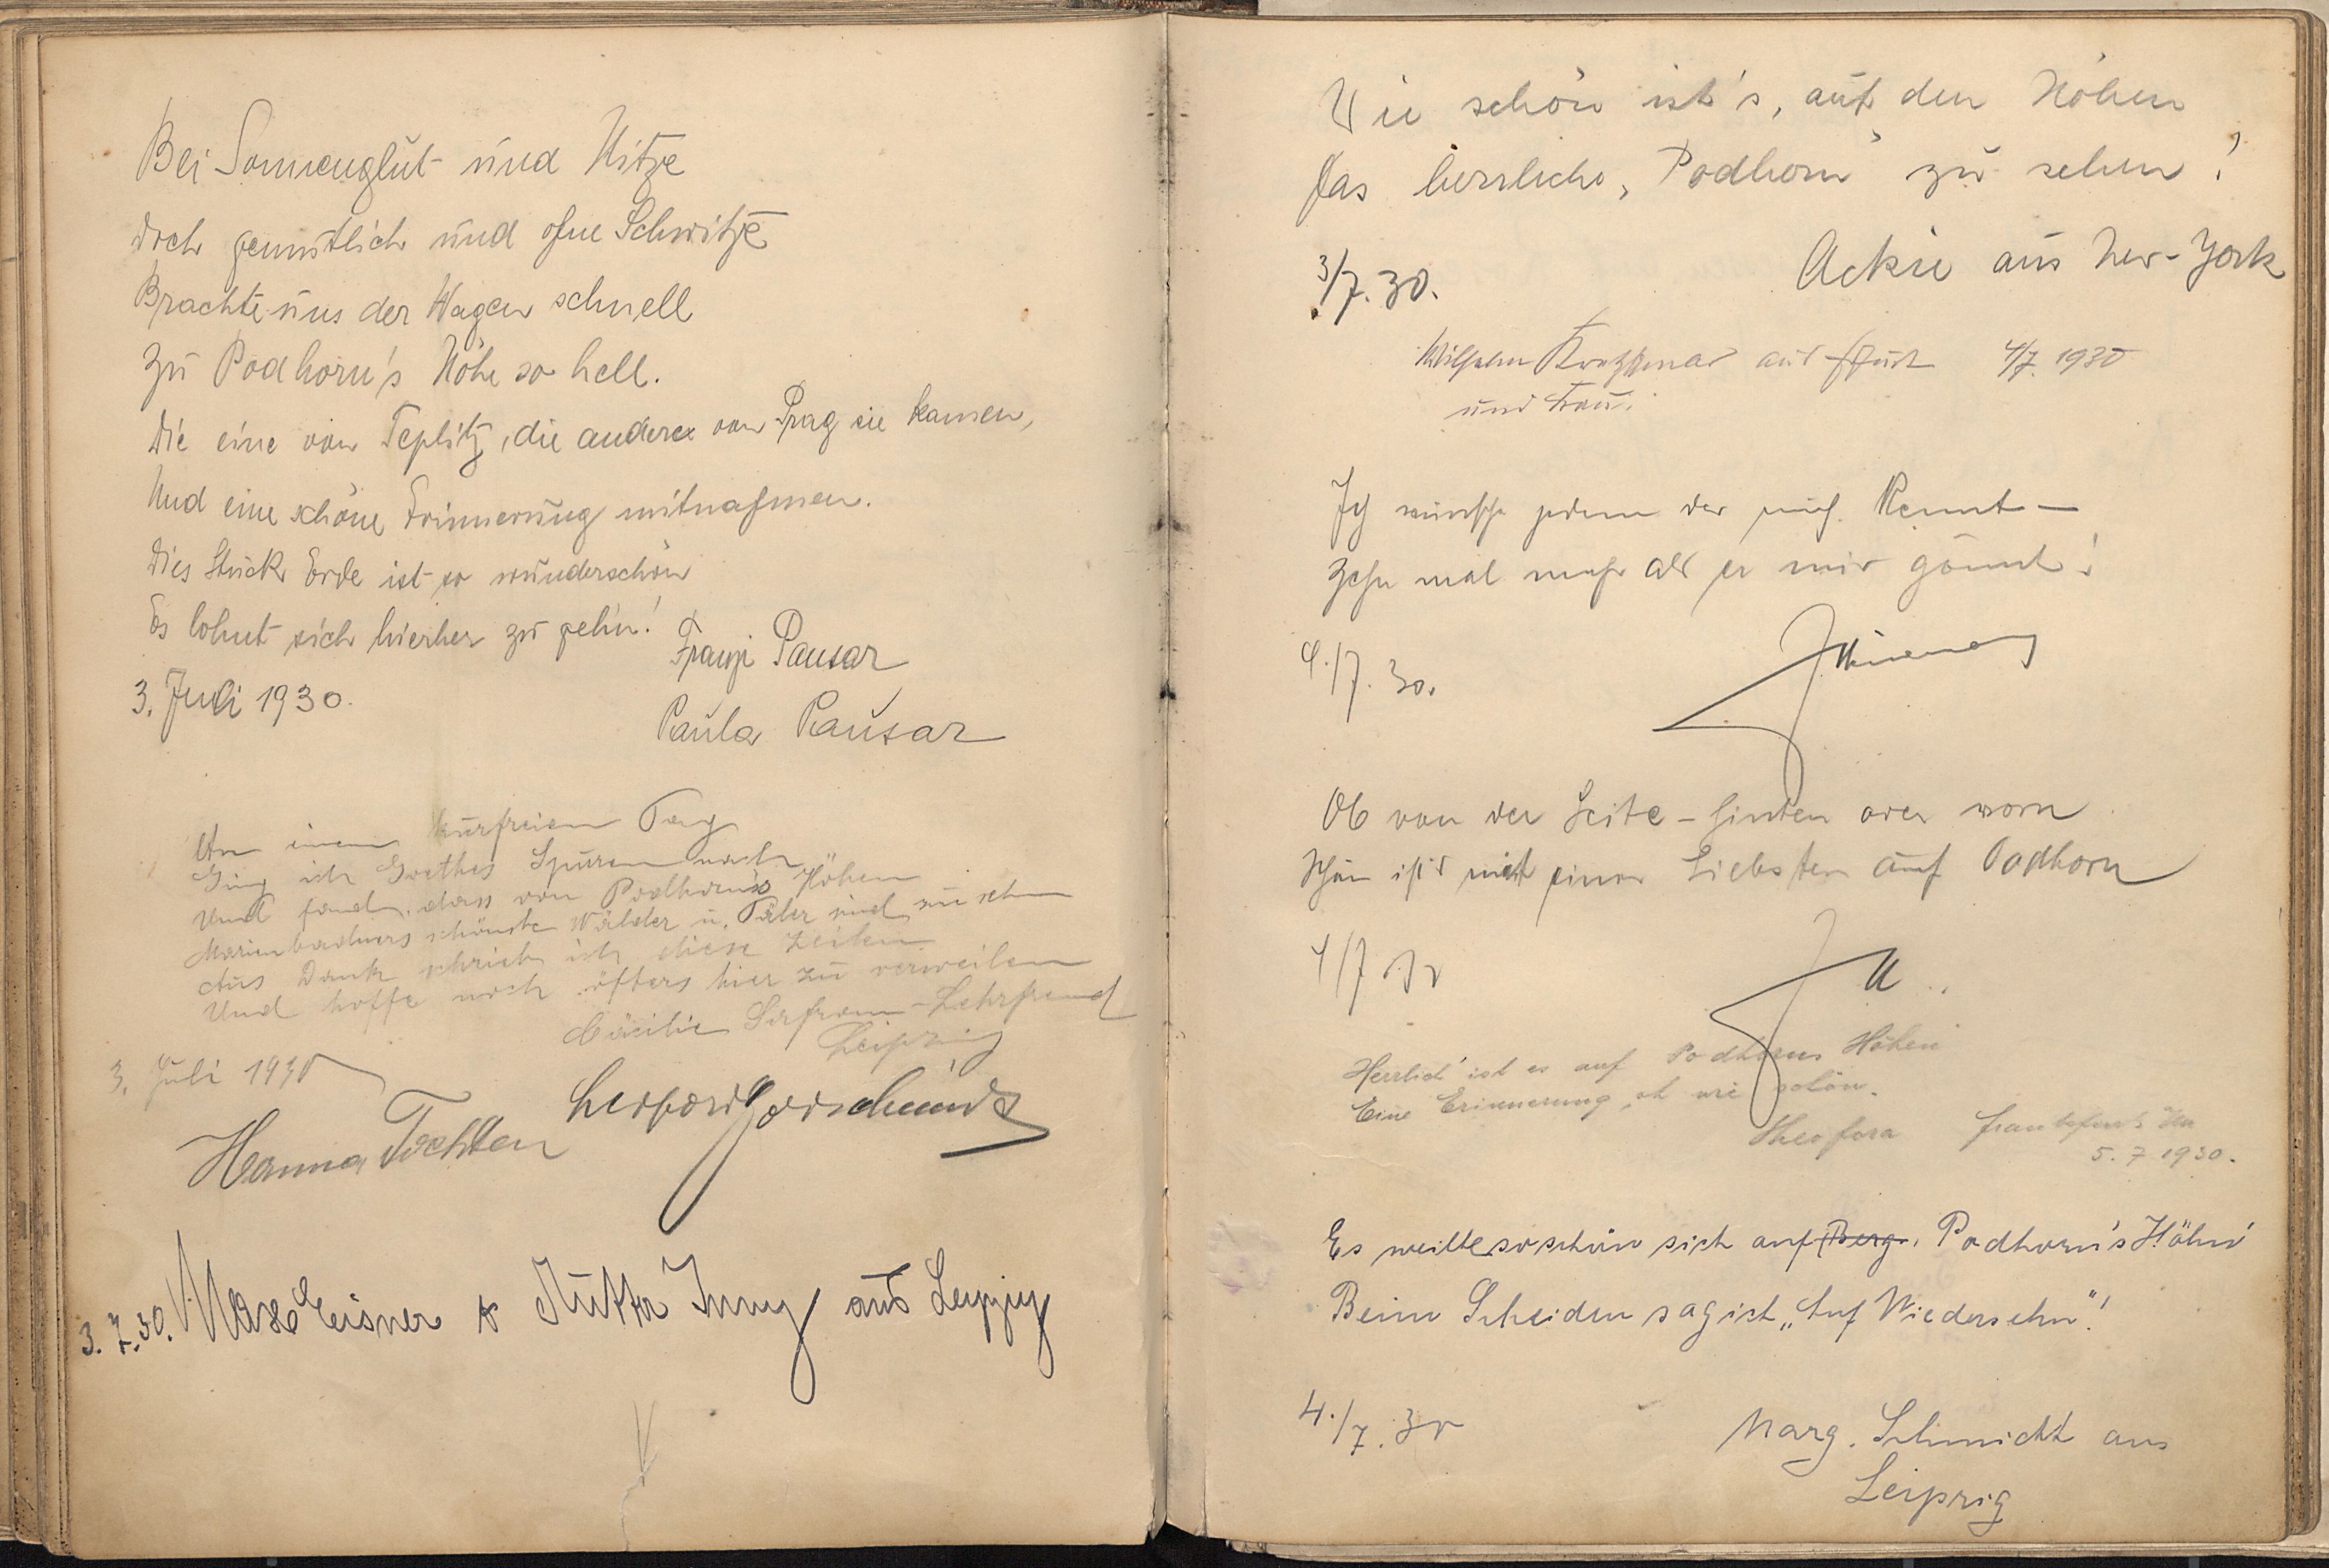 Bei Sonnenglut und Hitze
doch gemütlich und ohne Schwitze
Brachte uns der Wagen schnell
Zu Podhorn's Höhe so hell.
Die eine von Teplitz, die andere von Prag sie kamen,
Und eine schöne Erinnerung mitnahmen.
Dies Stück Erde ist so wunderschön
Es lohnt sich hierher zu gehn!
Franzi Pausar
3. Juli 1930.
Paula Pausar
An einem kurfreien Tag
Ging ich Goethes Spuren nach
Und fand, dass von Podhorn's Höhen
Marienbaders schönste Wälder u. Täler sind zu sehn
Aus Dank schrieb ich diese Zeilen
Und hoffe noch öfters hier zu verweilen
Cäcilie -Lehrfreund
Leipzig
3. Juli 1930
Hanna
3.7.30. Max Eisner & Jutta aus Leipzig
Wie schön ist's, auf den Höhen
Das herrliche „Podhorn" zu sehen!
Ackie aus New-York
3/7.30.
Wilhelm aus 4/7. 1930
und Frau.
Ich wünsche jedem der mich kennt —
Zehn mal mehr als er mir gönnt!
4./7. 30.
Ob von der Seite - hinten oder vorn
Schön ist's mit einer Liebsten auf Podhorn
4/7 30
Herrlich ist es auf Podhorns Höhen
Eine Erinnerung, oh wie schön.
Frankfurt
5. 7 1930.
Es weilte so schön sich auf Berg. Podhorn's Höhn'
Beim Scheiden sag ich „Auf Wiedersehn"!
4./7.30
Marg. Schmidt aus
Leipzig